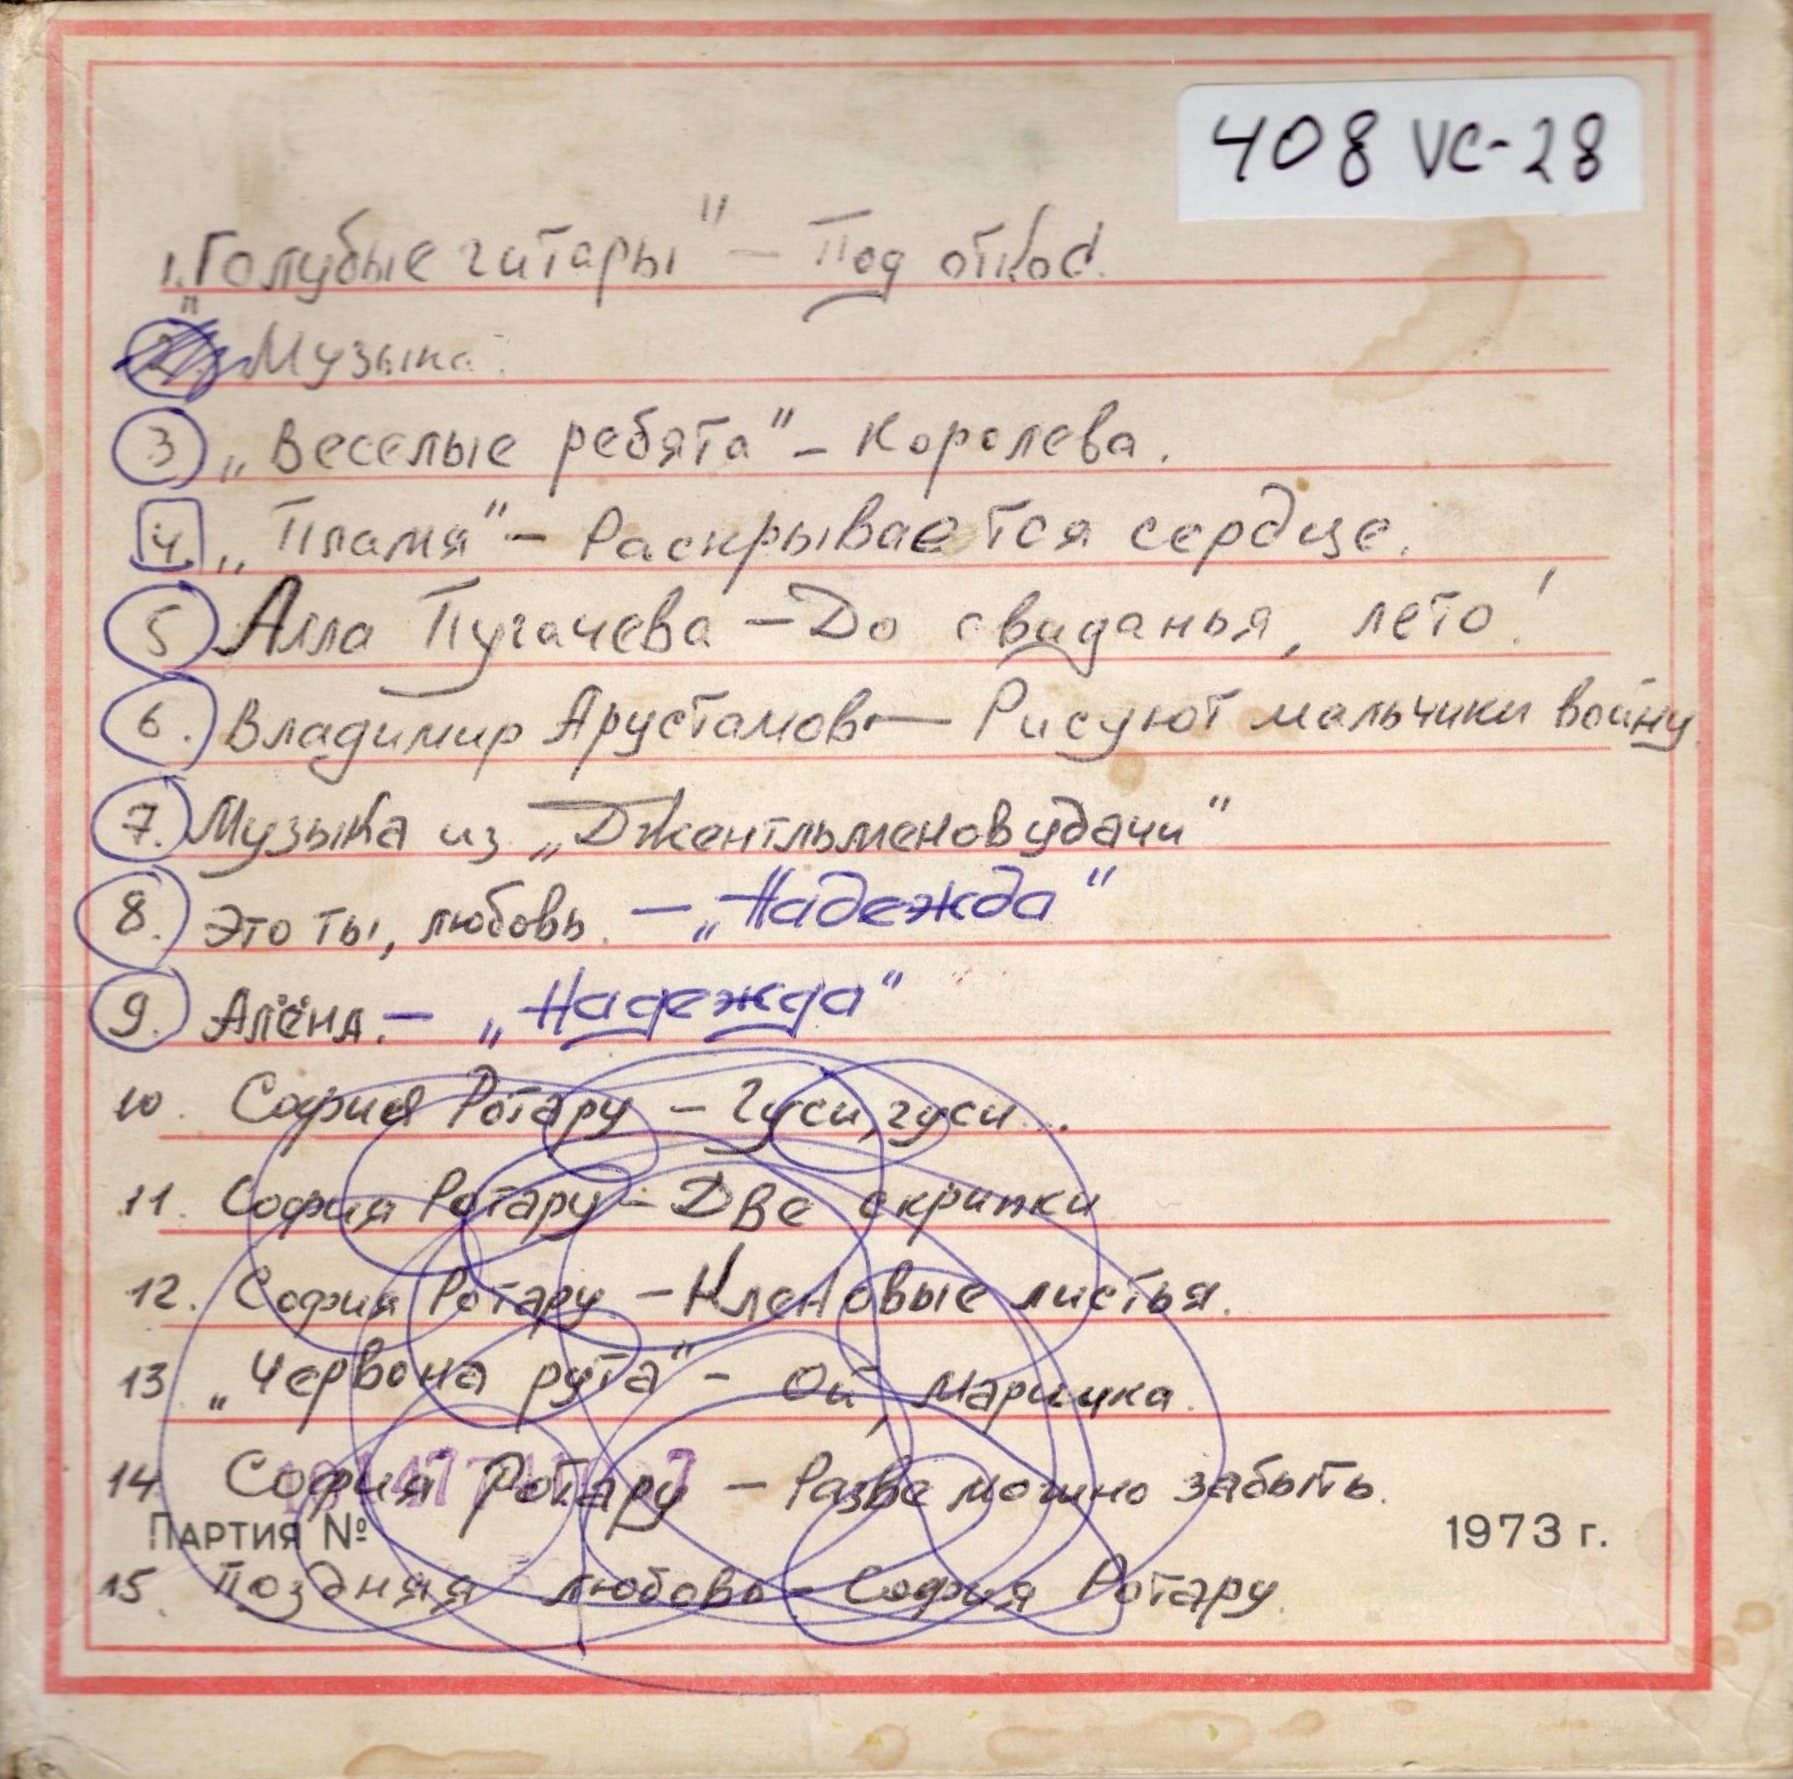 408 VC-28
1. "Голубые гитары" – Под откос.
2. Музыка.
3 „Веселые ребята" – Королева.
4. „Пламя" – Раскрывается сердце.
5 Алла Пугачева – До свиданья, лето!
6. Владимир Арустамов – Рисуют мальчики войну.
7. Музыка из „Джентльменов удачи"
8. Это ты, любовь. – „Надежда"
9. Алёна. – „Надежда"
10. София Ротару – Гуси, гуси...
11. София Ротару – Две скрипки
12. София Ротару – Кленовые листья.
13 „Червона рута" – Ой, Маричка.
14. София Ротару – Разве можно забыть.
Партия № 1973 г.
15. Поздняя любовь – София Ротару.